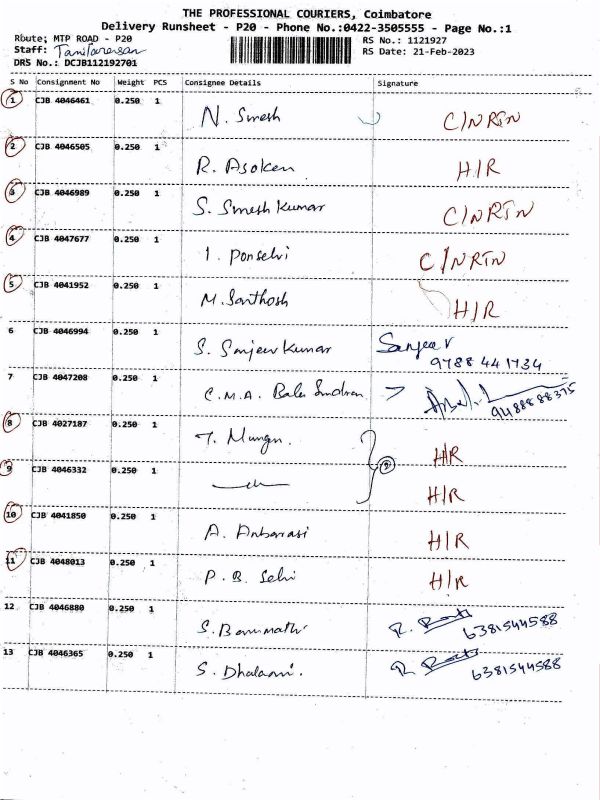 THE PROFESSIONAL COURIERS, Coimbatore
Delivery Runsheet - P20 - Phone No.:0422-3505555 - Page No.:1
Route: MTP ROAD - P20
RS No.: 1121927
Staff:
RS Date: 21-Feb-2023
DRS No.: DCJB112192701
S No Consignment No Weight PCS Consignee Details Signature
1 CJB 4046461 0.250 1 N. Suresh C/NRTN
2 CJB 4046505 0.250 1 R. Asoken H/R
3 CJB 4046989 0.250 1 S. Suresh Kumar C/NRTN
4 CJB 4047677 0.250 1 I. Ponselvi C/NRTN
5 CJB 4041952 0.250 1 M. Santhosh H/R
6 CJB 4046994 0.250 1 S. Sanjeev Kumar Sanjeev
9788 441734
7 CJB 4047208 0.250 1 C.M.A. Bala 9488888375
8 CJB 4027187 0.250 1 T. H/R
9 CJB 4046332 0.250 1 2 H/R
10 CJB 4041850 0.250 1 A. Anbarasi H/R
11 CJB 4048013 0.250 1 P. B. Selvi H/R
12 CJB 4046880 0.250 1 S. R. 6381544588
13 CJB 4046365 0.250 1 S. R. 6381544588